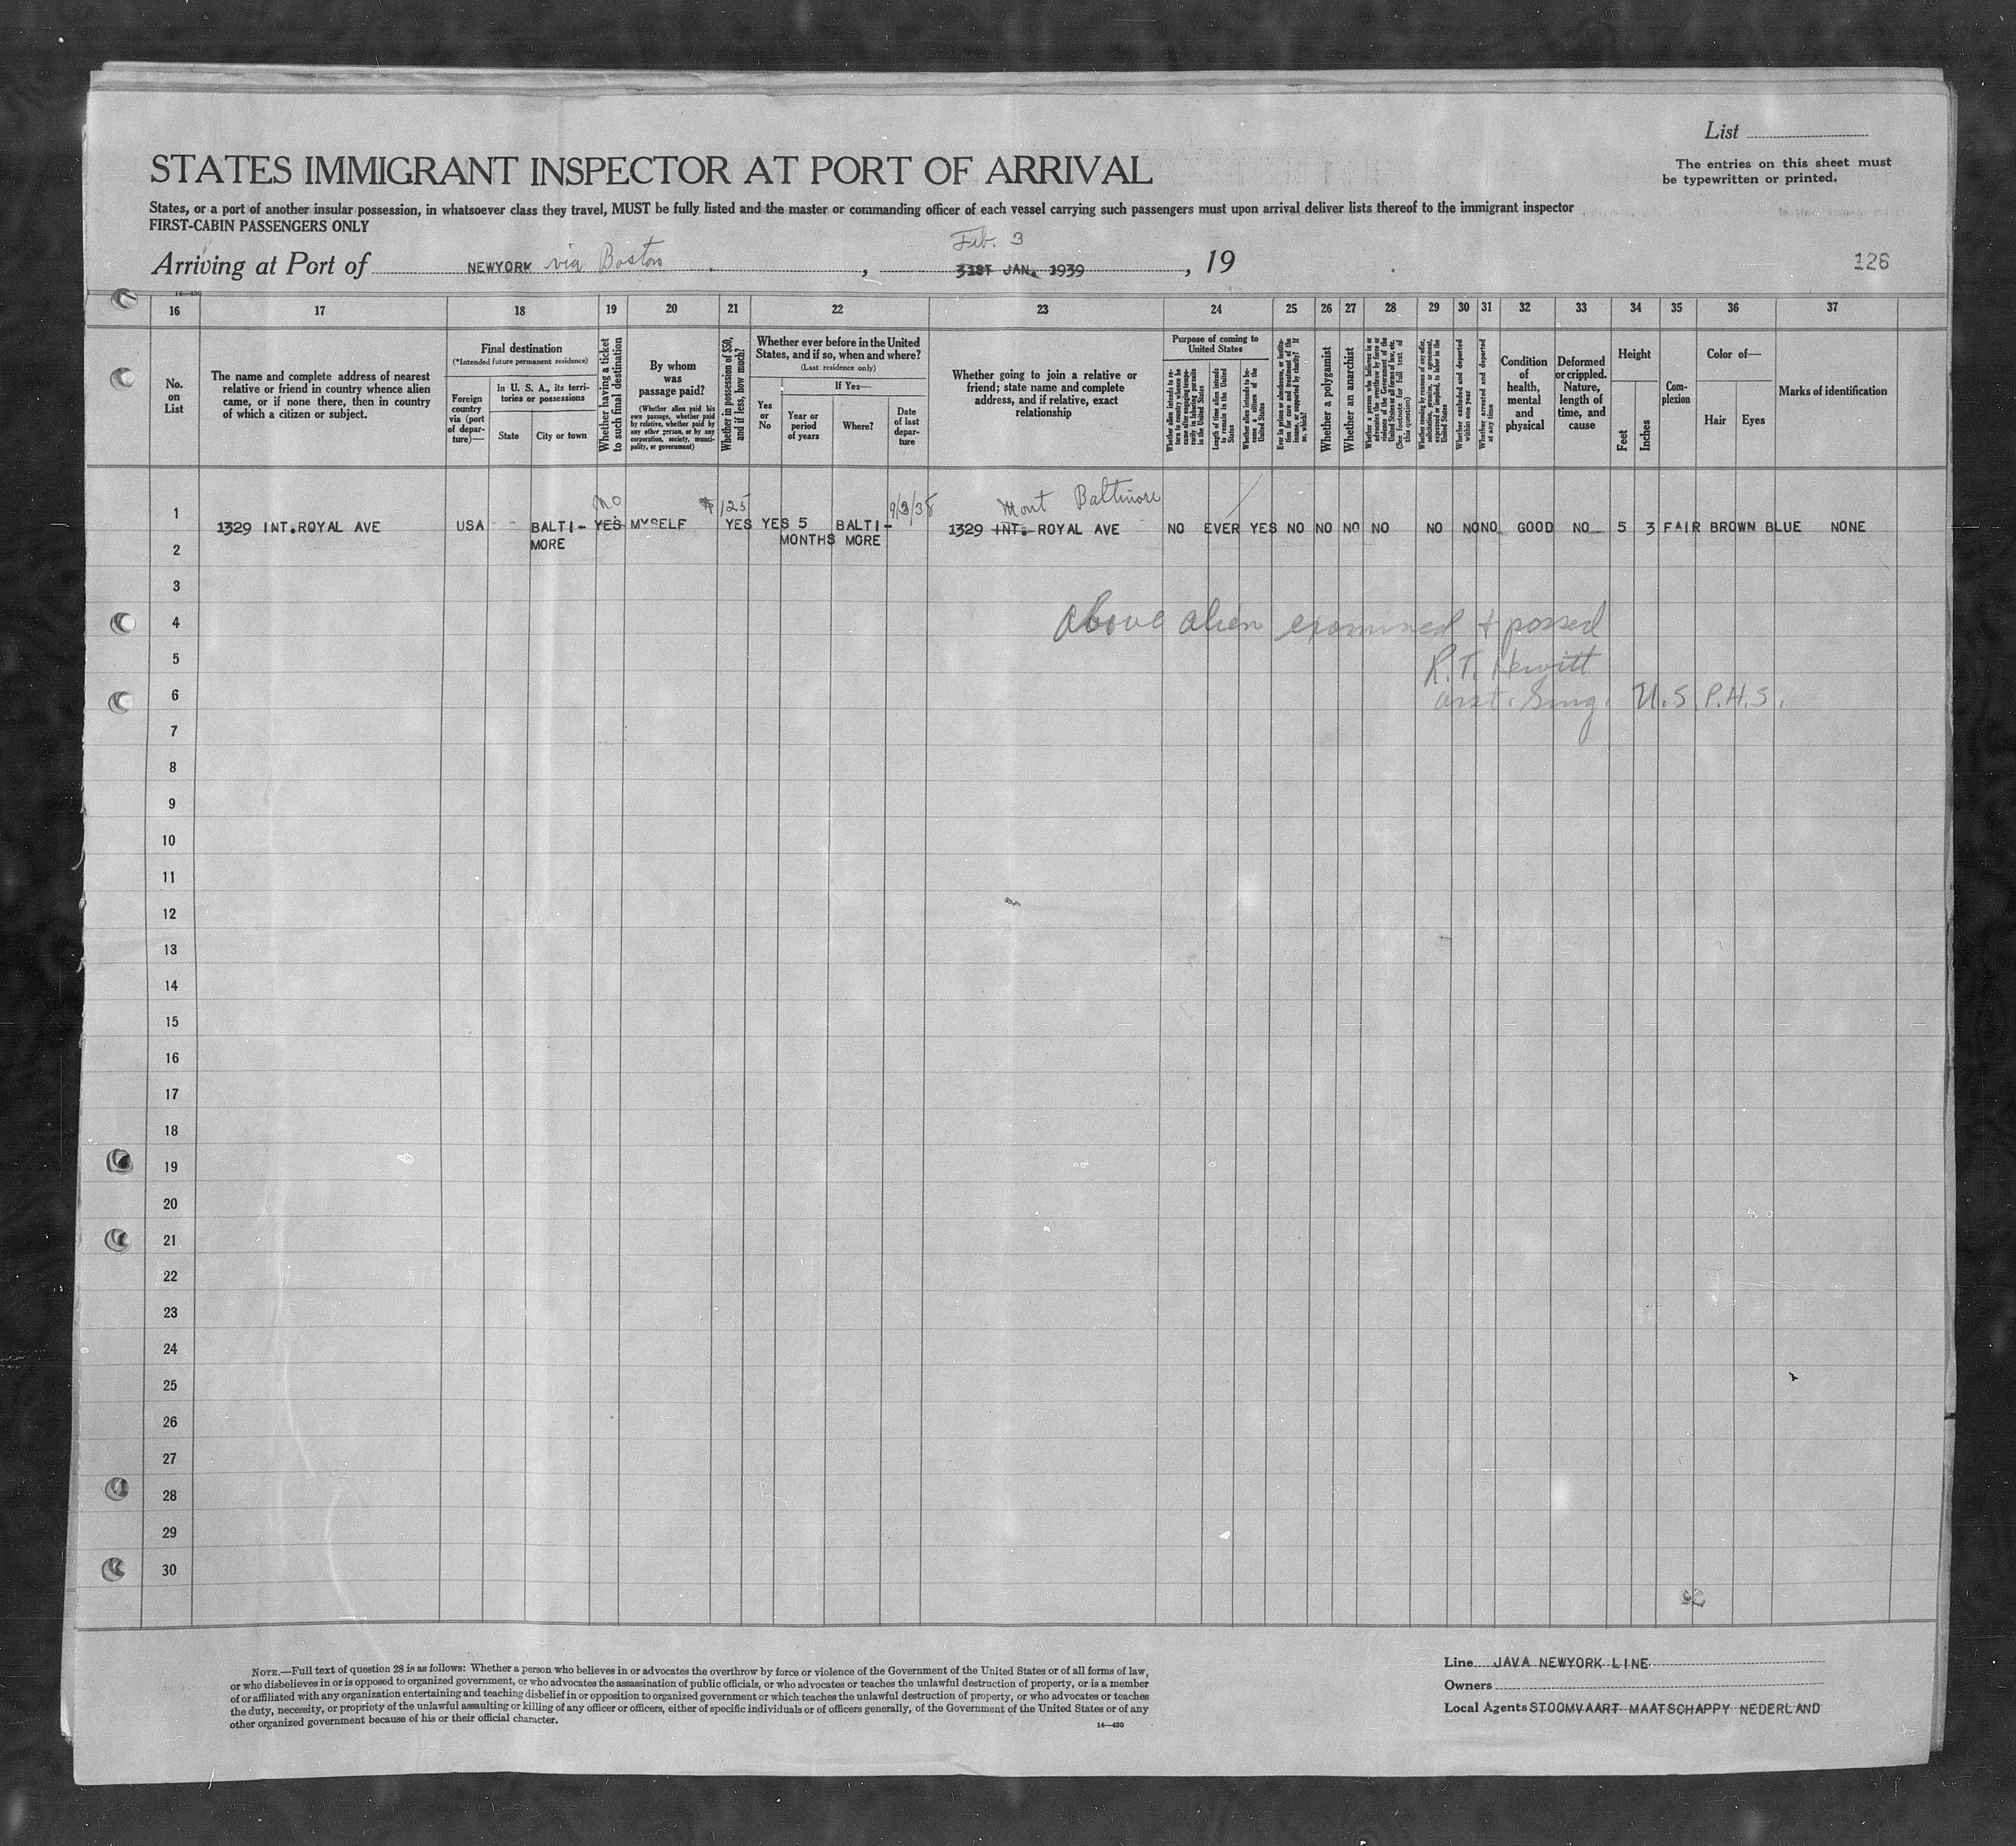 List
The entries on this sheet must
be typewritten or printed.
STATES IMMIGRANT INSPECTOR AT PORT OF ARRIVAL
States, or a port of another insular possession, in whatsoever class they travel, MUST be fully listed and the master or commanding officer of each vessel carrying such passengers must upon arrival deliver lists thereof to the immigrant inspector
FIRST-CABIN PASSENGERS ONLY
Feb. 3
Arriving at Port of NEWYORK via Boston, 31ST JAN. 1939, 19
126
16 17 18 19 20 21 22 23 24 25 26 27 28 29 30 31 32 33 34 35 36 37
No.
on
List
The name and complete address of nearest
relative or friend in country whence alien
came, or if none there, then in country
of which a citizen or subject.
Final destination
(*Intended future permanent residence)
Foreign
country
via (port
of depar-
ture)—
In U. S. A., its terri-
tories or possessions
State
City or town
Whether having a ticket
to such final destination
By whom
was
passage paid?
(Whether alien paid his
own passage, whether paid
by relative, whether paid by
any other person, or by any
corporation, society, munici-
pality, or government)
Whether in possession of $50,
and if less, how much?
Whether ever before in the United
States, and if so, when and where?
(Last residence only)
Yes
or
No
If Yes—
Year or
period
of years
Where?
Date
of last
depar-
ture
Whether going to join a relative or
friend; state name and complete
address, and if relative, exact
relationship
Purpose of coming to
United States
Whether alien intends to re-
turn to country whence he
came after engaging tempo-
rarily in laboring pursuits
in the United States
Length of time alien intends
to remain in the United
States
Whether alien intends to be-
come a citizen of the
United States
Ever in prison or almshouse, or institu-
tion for care and treatment of the
insane, or supported by charity? If
so, which?
Whether a polygamist
Whether an anarchist
Whether a person who believes in or
advocates the overthrow by force or
violence of the Government of the
United States or all forms of law, etc.
(See footnote for full text of
this question)
Whether coming by reasons of any offer,
solicitation, promise, or agreement,
expressed or implied, to labor in the
United States
Whether excluded and deported
within one year
Whether arrested and deported
at any time
Condition
of
health,
mental
and
physical
Deformed
or crippled.
Nature,
length of
time, and
cause
Height
Feet
Inches
Com-
plexion
Color of—
Hair
Eyes
Marks of identification
No $125 9/3/38 Mont Baltimore
1 1329 INT.ROYAL AVE USA - BALTI- YES MYSELF YES YES 5 BALTI- 1329 INT. ROYAL AVE NO EVER YES NO NO NO NO NO NO NO GOOD NO 5 3 FAIR BROWN BLUE NONE
2 MORE MONTHS MORE
3
4 Above alien examined + passed
5 R.T. Hewitt
6 asst. Surg. U.S.P.H.S.
7
8
9
10
11
12
13
14
15
16
17
18
19
20
21
22
23
24
25
26
27
28
29
30
NOTE.—Full text of question 28 is as follows: Whether a person who believes in or advocates the overthrow by force or violence of the Government of the United States or of all forms of law,
or who disbelieves in or is opposed to organized government, or who advocates the assassination of public officials, or who advocates or teaches the unlawful destruction of property, or is a member
of or affiliated with any organization entertaining and teaching disbelief in or opposition to organized government or which teaches the unlawful destruction of property, or who advocates or teaches
the duty, necessity, or propriety of the unlawful assaulting or killing of any officer or officers, either of specific individuals or of officers generally, of the Government of the United States or of any
other organized government because of his or their official character.
14—430
Line JAVA NEWYORK LINE
Owners
Local Agents STOOMVAART MAATSCHAPPY NEDERLAND